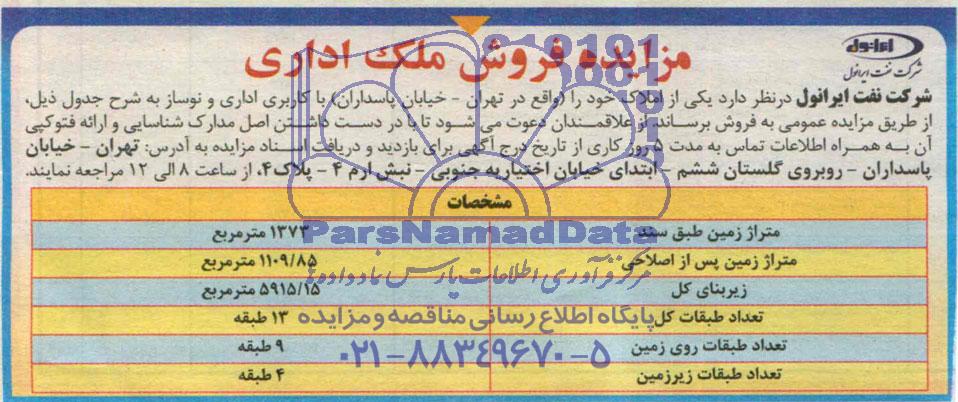 ایرانول
شرکت نفت ایرانول
مزایده فروش ملک اداری
شرکت نفت ایرانول درنظر دارد یکی از املاک خود را (واقع در تهران - خیابان پاسداران) با کاربری اداری و نوساز به شرح جدول ذیل،
از طریق مزایده عمومی به فروش برساند. از علاقمندان دعوت می شود تا با در دست داشتن اصل مدارک شناسایی و ارائه فتوکپی
آن به همراه اطلاعات تماس به مدت ۵ روز کاری از تاریخ درج آگهی برای بازدید و دریافت اسناد مزایده به آدرس: تهران - خیابان
پاسداران - روبروی گلستان ششم - ابتدای خیابان اختیاریه جنوبی - نبش ارم ۴ - پلاک۴، از ساعت ۸ الی ۱۲ مراجعه نمایند.
مشخصات
متراژ زمین طبق سند ۱۳۷۳ مترمربع
ParsNamadData
متراژ زمین پس از اصلاحی ۱۱۰۹/۸۵ مترمربع
مرکز فرآوری اطلاعات پارس نماد داده ها
زیربنای کل ۵۹۱۵/۱۵ مترمربع
تعداد طبقات کل ۱۳ طبقه
پایگاه اطلاع رسانی مناقصه و مزایده
تعداد طبقات روی زمین ۹ طبقه
۰۲۱-۸۸۳۴۹۶۷۰-۵
تعداد طبقات زیرزمین ۴ طبقه